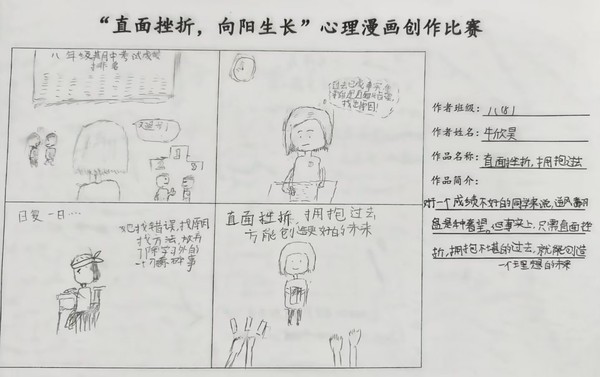 “直面挫折，向阳生长”心理漫画创作比赛
八年级其月中考试成绩
排名
又退步了
找出原因!
日复一日…
找错误,找原因
找方法,放弃
了除学习外的
一切琐碎事
直面挫折,拥抱过去
方能创造更好的未来
作者班级：八(8)
作者姓名：牛欣昊
作品名称：直面挫折,拥抱过去
作品简介：
对一个成绩不好的同学来说,逆风翻
盘是种奢望,但事实上,只需直面挫
折,拥抱不堪的过去,就能创造
一个理想的未来